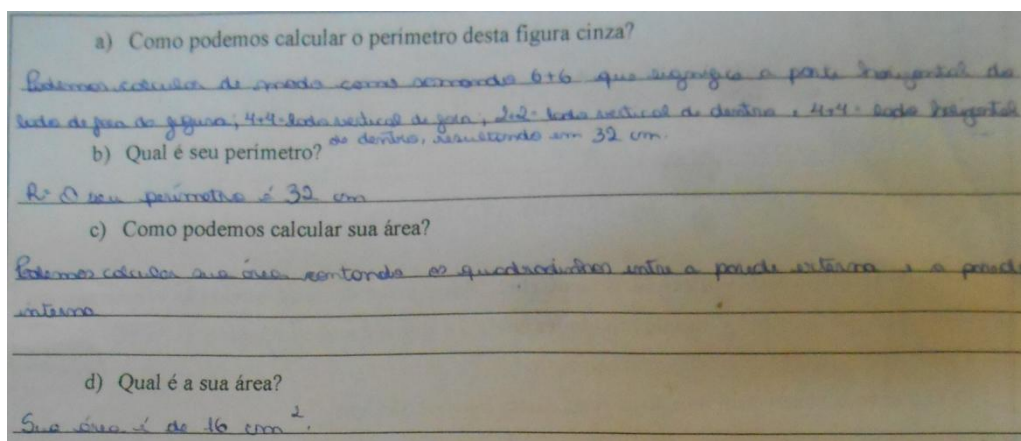 a) Como podemos calcular o perímetro desta figura cinza?
Podemos calcular de modo como somando 6+6 que significa a parte horizontal do
lado de fora da figura; 4+4 - lado vertical de fora, 2+2 - lado vertical de dentro e 4+4 - lado horizontal
de dentro, resultando em 32 cm.
b) Qual é seu perímetro?
R= O seu perímetro é 32 cm
c) Como podemos calcular sua área?
Podemos calcular sua área contando os quadradinhos entre a parede externa e a parede
interna
d) Qual é a sua área?
Sua área é de 16 cm².